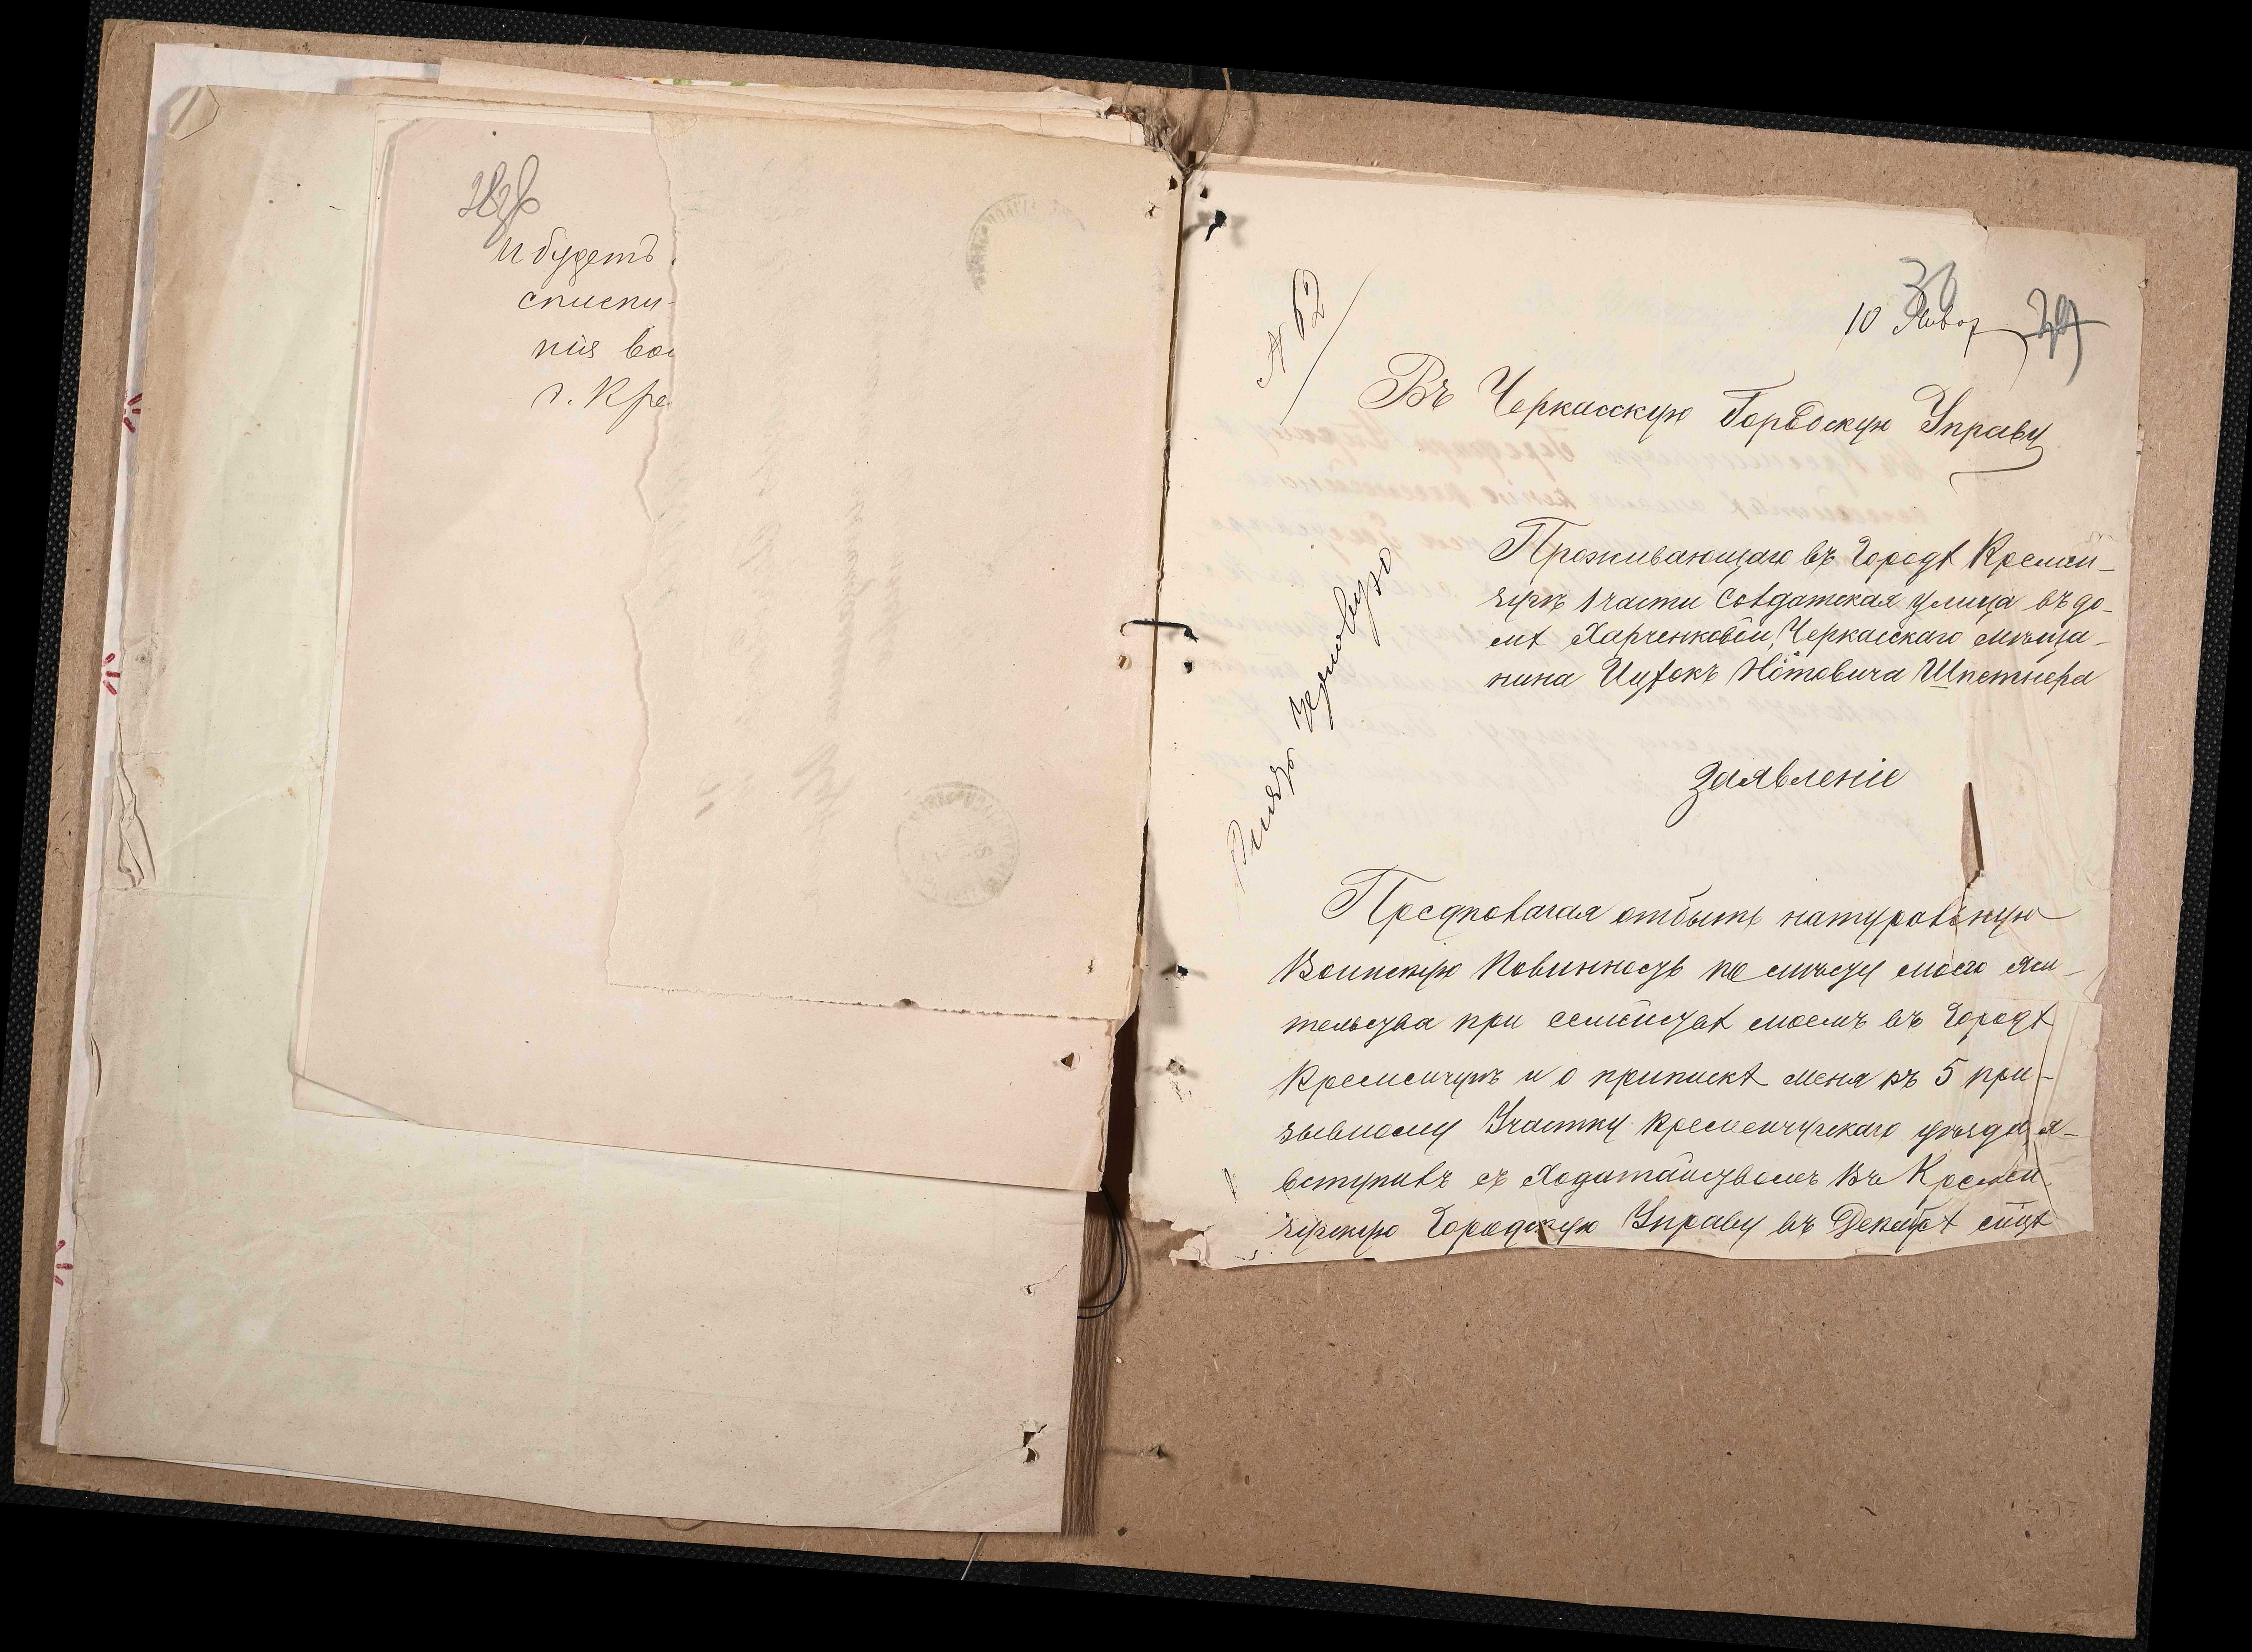 и будетъ
списки
нія вои
г. Кре
№ 62
10 Января
Въ Черкасскую Городскую Управу
Проживающаго въ Городѣ Кремен-
чугѣ 1 части Солдатская улица въ до-
мѣ Харченковой, Черкасскаго мѣща-
нина Ицѣокъ Нотовича Шпетнера
Заявленіе
Предполагая отбыть натуральную
Воинскую Повинность по мѣсту моего жи-
тельства при семействѣ моемъ въ Городѣ
Кременчугѣ и о припискѣ меня къ 5 при-
зывному Участку Кременчугскаго уѣзда, я-
вступилъ съ Ходатайствомъ Въ Кремен
чугскую Городскую Управу въ Декабрѣ м-цѣ